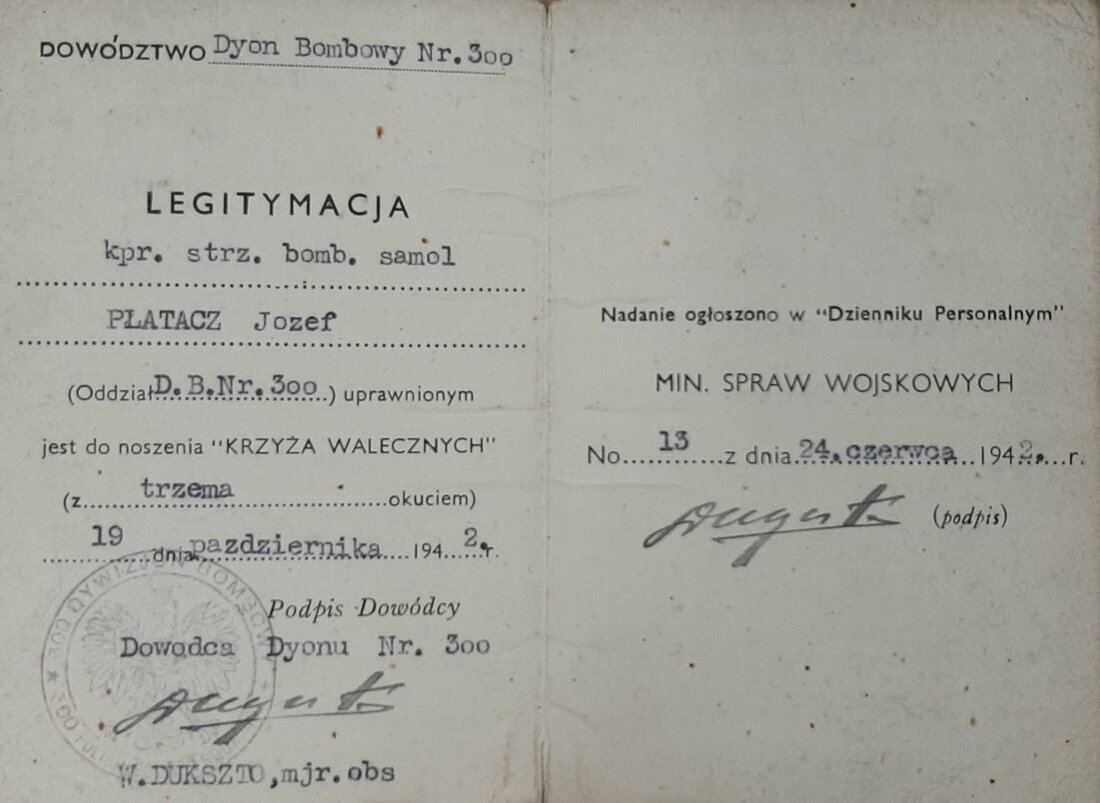 DOWÓDZTWO Dyon Bombowy Nr.300
LEGITYMACJA
kpr. strz. bomb. samol
PLATACZ Jozef
(Oddział D.B.Nr.300) uprawnionym
jest do noszenia "KRZYŻA WALECZNYCH"
(z trzema okuciem)
19 dnia pazdziernika 1942.r.
Podpis Dowódcy
Dowodca Dyonu Nr. 300
W.DUKSZTO,mjr.obs
★ 300 DYWIZJON BOMBOW
Nadanie ogłoszono w "Dzienniku Personalnym"
MIN. SPRAW WOJSKOWYCH
No 13 z dnia 24.czerwca 1942.r.
(podpis)